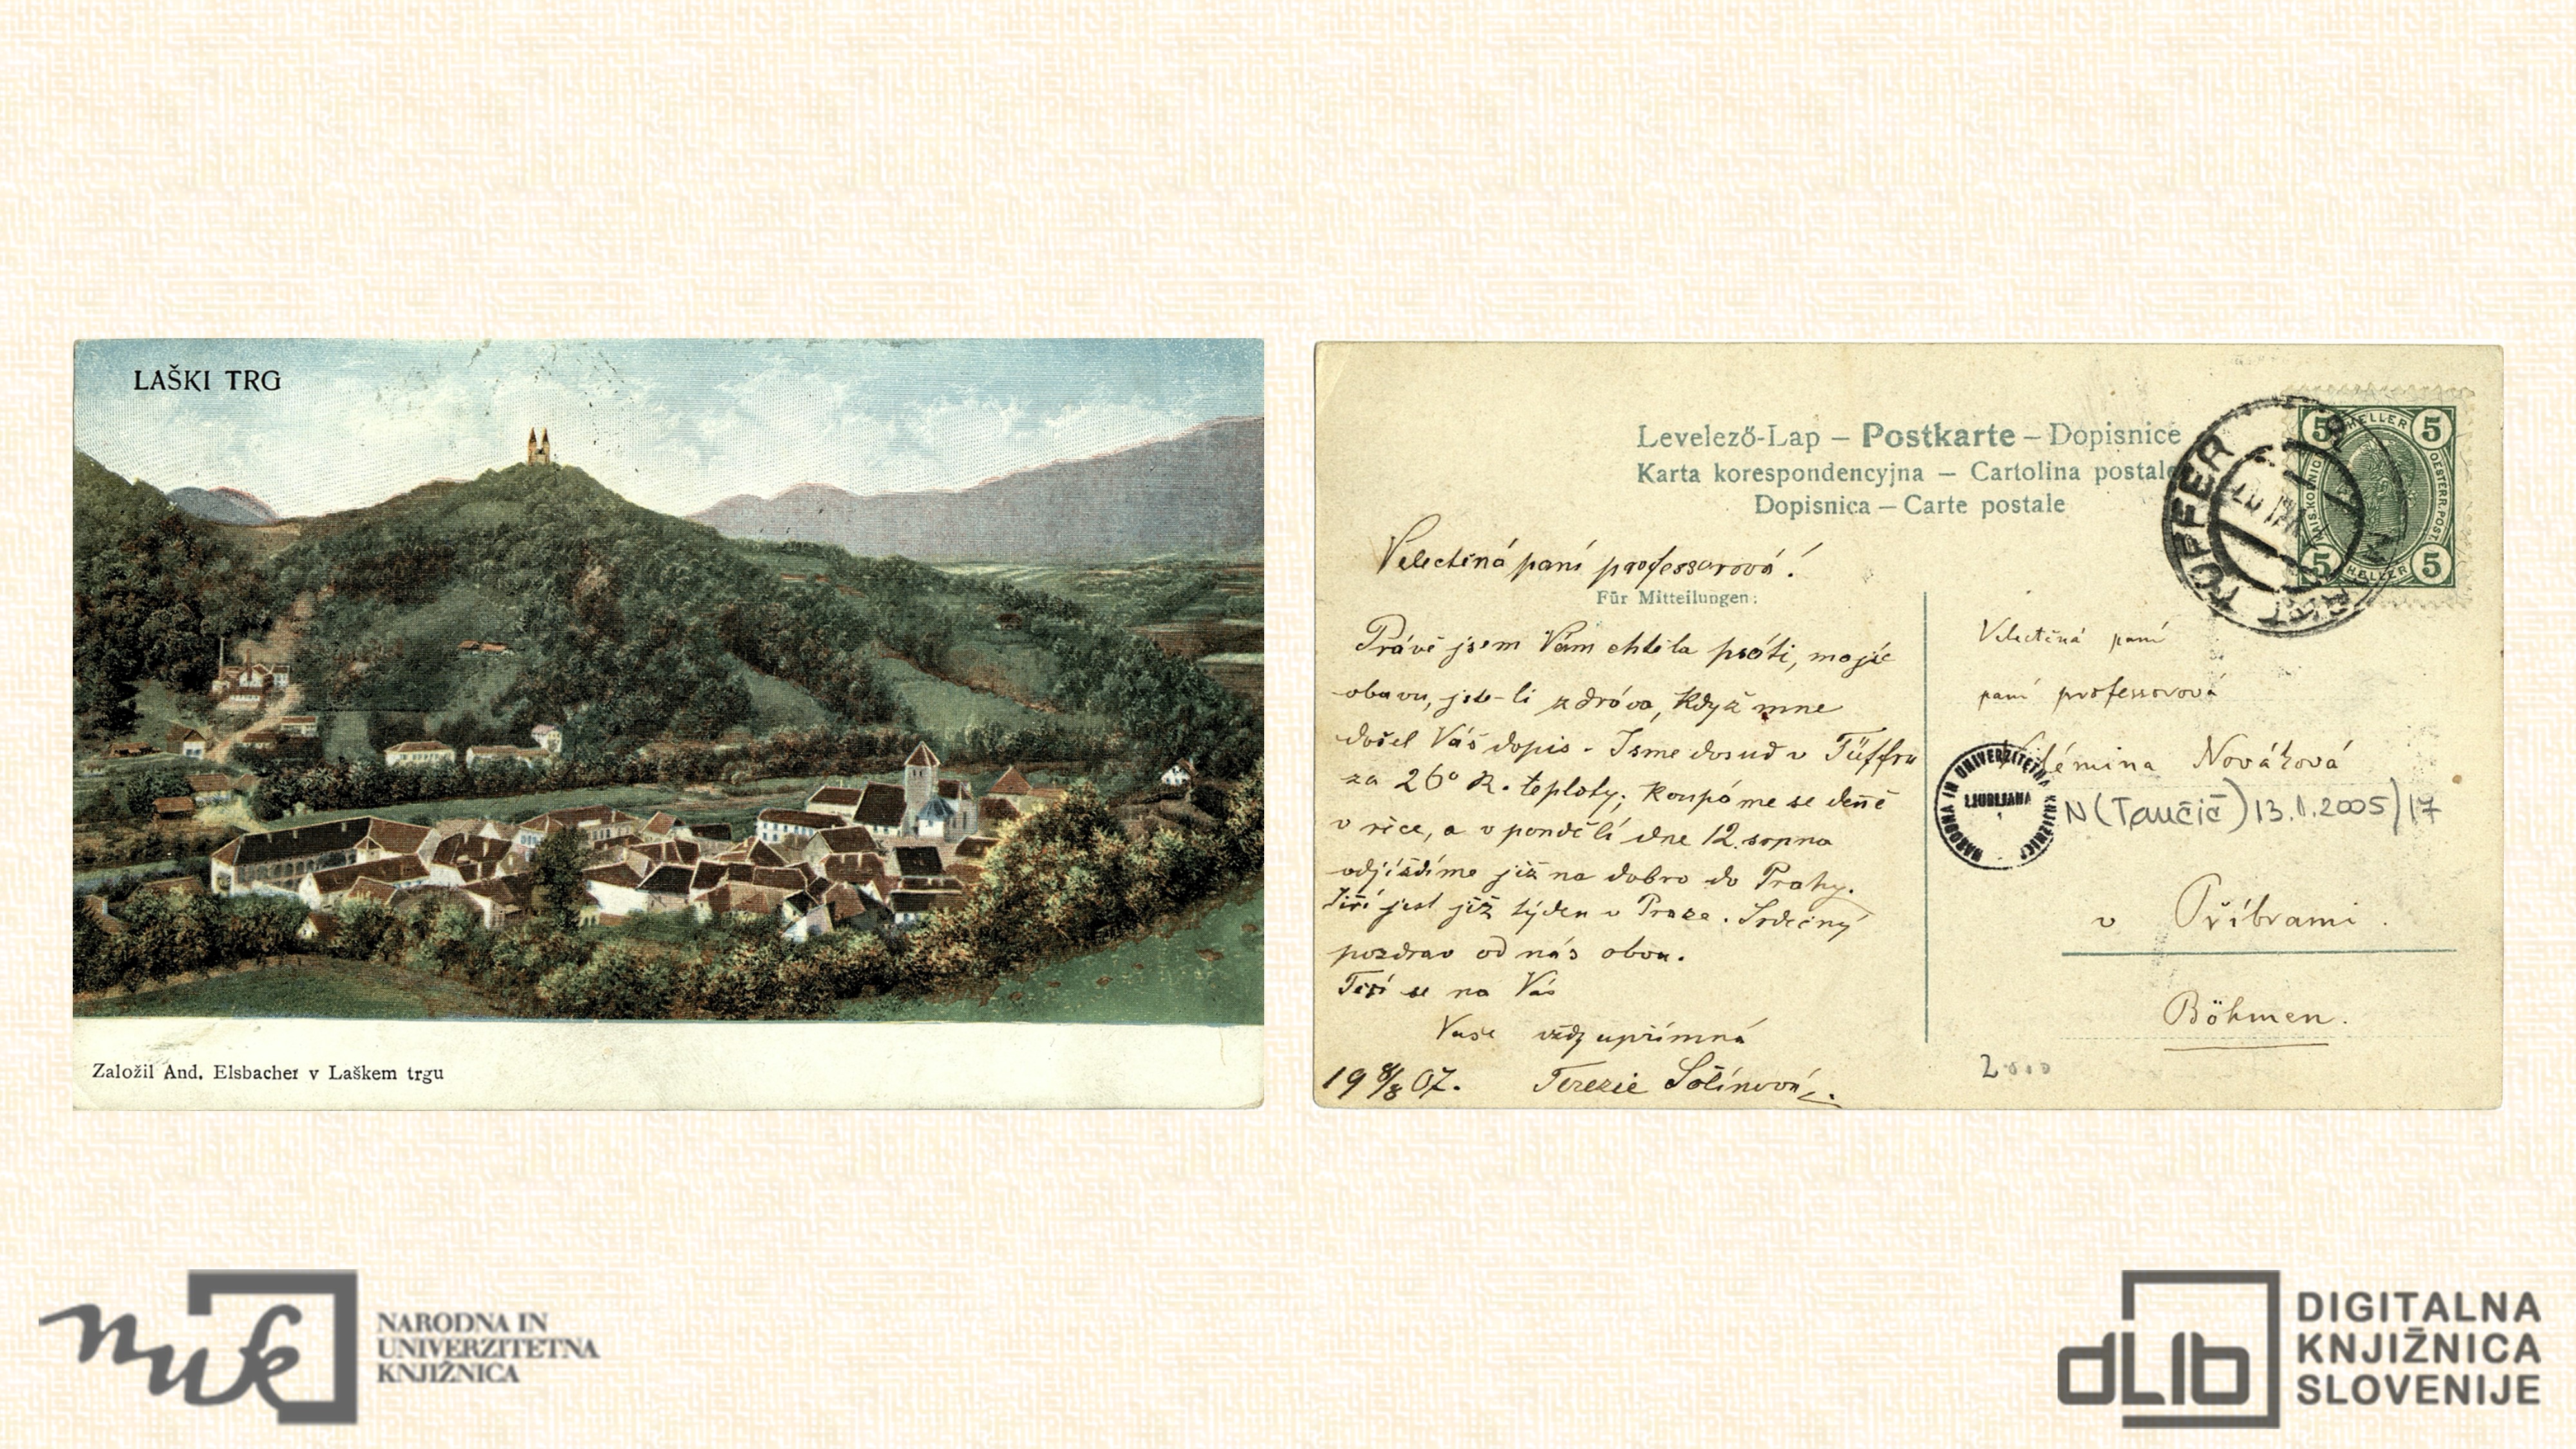 LAŠKI TRG
Založil And. Elsbacher v Laškem trgu
Levelező-Lap – Postkarte – Dopisnice
Karta korespondencyjna – Cartolina postale
Dopisnica – Carte postale
Velectěná paní professorová!
Für Mitteilungen:
Právě jsem Vám chtěla psáti, majíc
obavu, jste-li zdráva, když mne
došel Váš dopis. Jsme dosud v Tüffru
za 26° R. teploty; koupáme se denně
v řece, a v pondělí dne 12. srpna
odjíždíme již na dobro do Prahy.
Jiří jest již týden v Praze. Srdečný
pozdrav od nás obou.
Těší se na Vás
Vaše vždy upřímná
19 8/8 07. Terezie Sólínová
5 HELLER 5
OESTERR. POST
5 HELLER 5
TÜFFER
Velectěná paní
paní professorová
Nováková
NARODNA IN UNIVERZITETNA KNJIŽNICA
LJUBLJANA
N (Taučič) 13.1.2005/17
v Příbrami.
Böhmen.
nuk
NARODNA IN
UNIVERZITETNA
KNJIŽNICA
dLib
DIGITALNA
KNJIŽNICA
SLOVENIJE